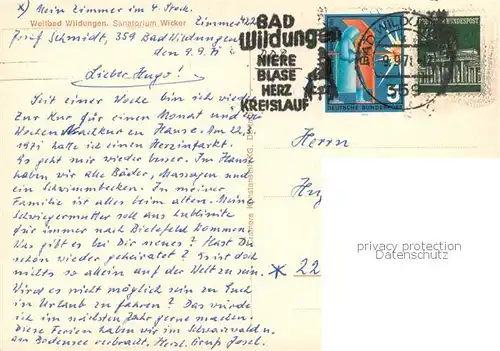 x) Mein Zimmer im 4. Stock.
Weltbad Wildungen. Sanatorium Wicker Zimmer 22
Josef Schmidt, 359 Bad Wildungen
den 9.9.71
Lieber Hugo!
Seit einer Woche bin ich wieder
zur Kur für einen Monat und
Wochen Nachkur en Hause. Am 22.3.
1971 habe ich einen Herzinfarkt.
Es geht mir wieder besser. Im Hause
haben wir alle Bäder, Massagen und
ein Schwimmbecken. In meiner
Familie ist alles beim alten. Meine
Schwiegermutter soll aus Lublinitz
für immer nach Bielefeld kommen.
Was gibt es bei Dir neues? Hast Du
schon wieder geheiratet? Es ist doch
nichts so allein auf der Welt zu sein.
Wird es nicht möglich sein zu Euch
in Urlaub zu fahren? Das würde
ich im nächsten Jahr gerne machen.
Diese Ferien haben wir im Schwarzwald u.
am Bodensee verbracht. Herzl. Gruß Josef.
BAD
Wildungen
NIERE
BLASE
HERZ
KREISLAUF
BAD WILDUNGEN
9.9.71
359
DEUTSCHE BUNDESPOST
Herrn
* 22
picture protection
oldthing.com